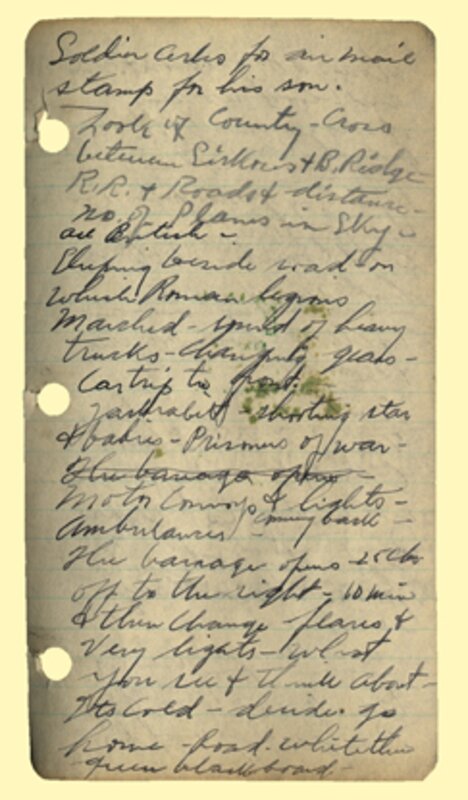 Soldier asks for air mail
stamp for his son.
Look of County - Cross
between Sirkous & B. Ridge
R.R. & Roads & distance -
no. of Planes in Sky -
all British -
Sleeping beside road - on
which Roman legions
Marched - sound of heavy
trucks - changing gears -
Car trip to front.
Jackrabbit - shooting star
& babies - Prisoners of war -
The barrage opens -
Motor Convoys & lights -
Ambulances coming back -
The barrage opens - 25 lbs
off to the right - 10 min
& then change flares &
Very lights - what
you see & think about -
Its Cold - decide go
home - Road. white then
green blackboard -